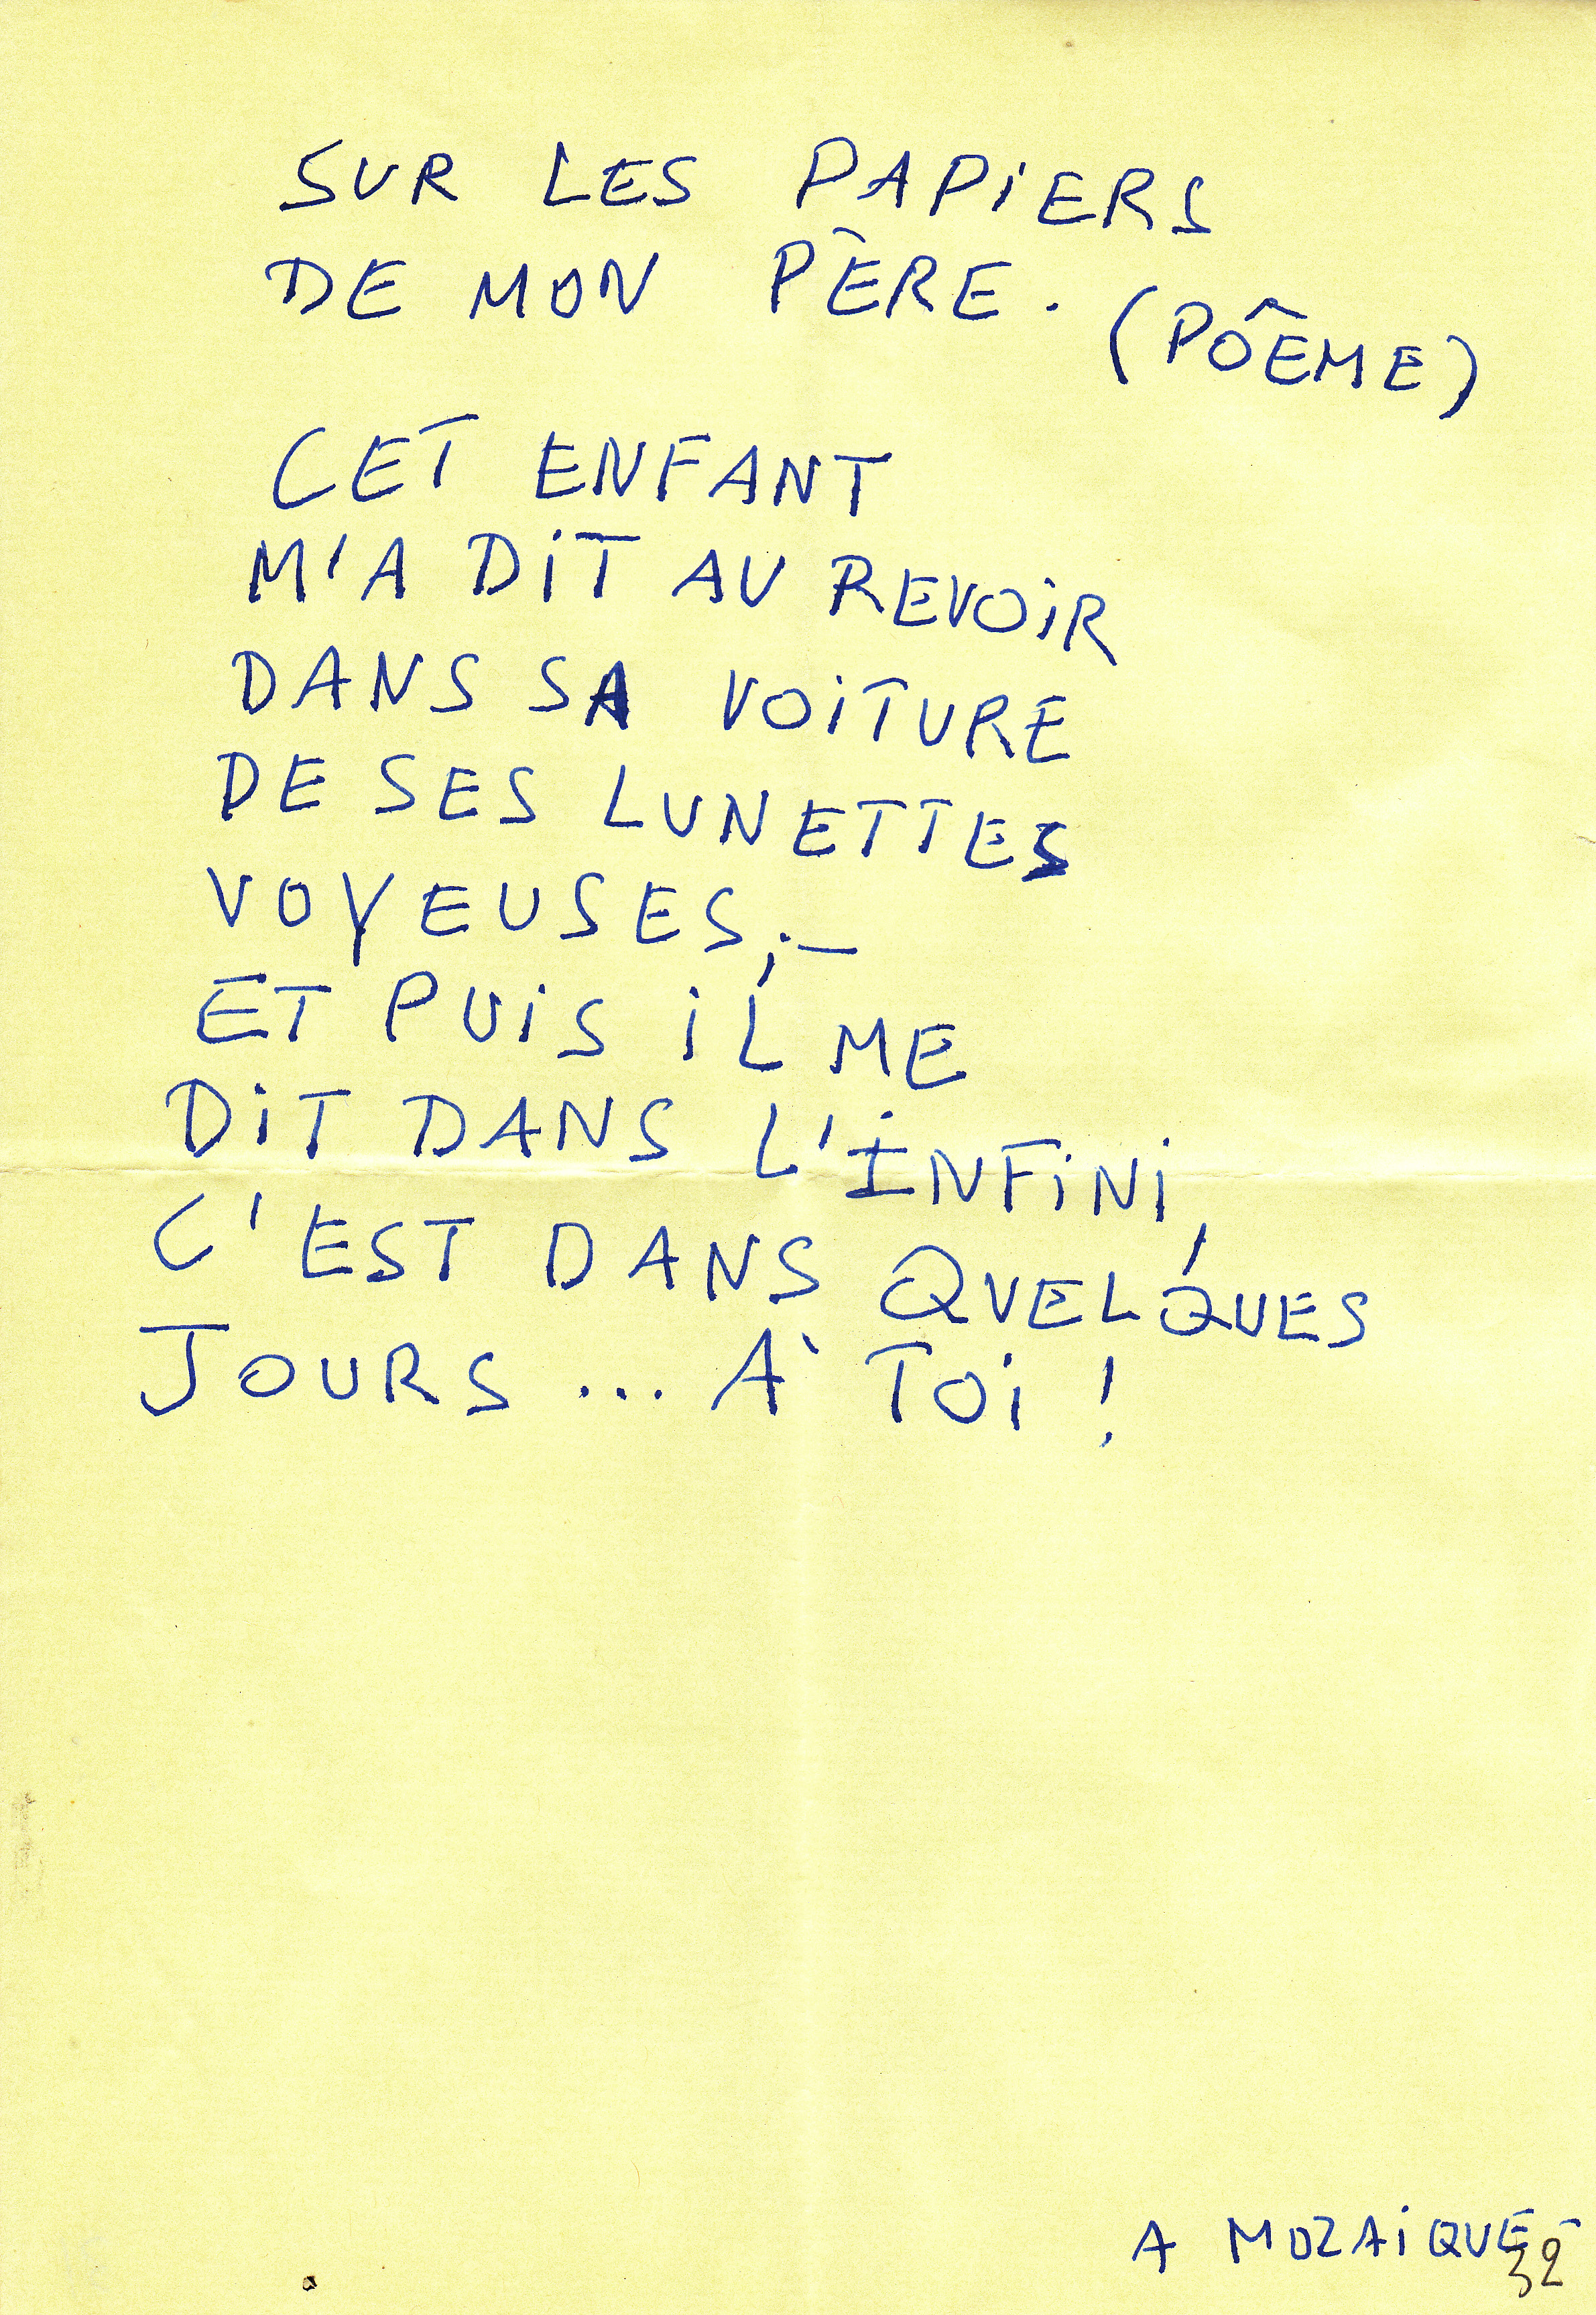 SUR LES PAPIERS
DE MON PÈRE.
(POÊME)
CET ENFANT
M'A DIT AU REVOIR
DANS SA VOITURE
DE SES LUNETTES
VOYEUSES;—
ET PUIS IL ME
DIT DANS L'INFINI,
C'EST DANS QUELQUES
JOURS... À TOI !
A MOZAIQUE-
32